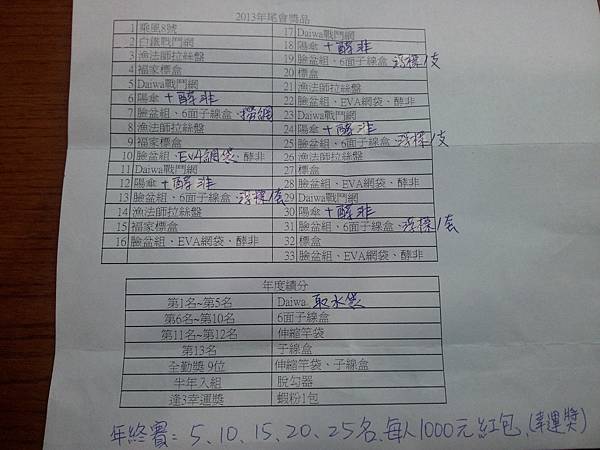 2013年尾會獎品
1 乘風8號 17 Daiwa戰鬥網
2 白鐵戰鬥網 18 陽傘 + 酵非
3 漁法師拉絲盤 19 臉盆組、6面子線盒、浮標1支
4 福家標盒 20 標盒
5 Daiwa戰鬥網 21 漁法師拉絲盤
6 陽傘 + 酵非 22 臉盆組、EVA網袋、酵非
7 臉盆組、6面子線盒、撈網 23 Daiwa戰鬥網
8 漁法師拉絲盤 24 陽傘 + 酵非
9 福家標盒 25 臉盆組、6面子線盒、浮標1支
10 臉盆組、EVA網袋、酵非 26 漁法師拉絲盤
11 Daiwa戰鬥網 27 標盒
12 陽傘 + 酵非 28 臉盆組、EVA網袋、酵非
13 臉盆組、6面子線盒、浮標1支 29 Daiwa戰鬥網
14 漁法師拉絲盤 30 陽傘 + 酵非
15 福家標盒 31 臉盆組、6面子線盒、浮標1支
16 臉盆組、EVA網袋、酵非 32 標盒
33 臉盆組、EVA網袋、酵非
年度績分
第1名~第5名 Daiwa 取水袋
第6名~第10名 6面子線盒
第11名~第12名 伸縮竿袋
第13名 子線盒
全勤獎 9位 伸縮竿袋、子線盒
半年入組 脫勾器
逢3幸運獎 蝦粉1包
年終賽: 5、10、15、20、25名、每人1000元紅包、(幸運獎)